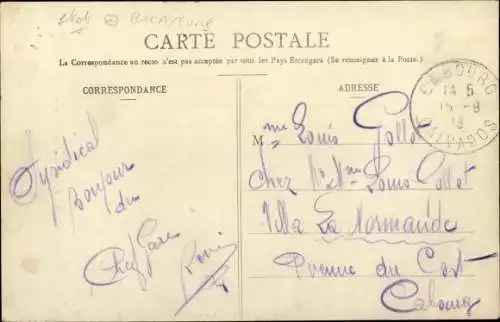 BALAYEUSE
CARTE POSTALE
La Correspondance au recto n'est pas acceptée par tous les Pays Etrangers (Se renseigner à la Poste.)
CORRESPONDANCE
ADRESSE
CABOURG
14 5
15 -9
CALVADOS
Mme Louis Gollot
Chez Mr Mme Louis Gollot
Villa La Normande
Avenue du
Cabourg
Syndical
bonjour
du
Chef Gare